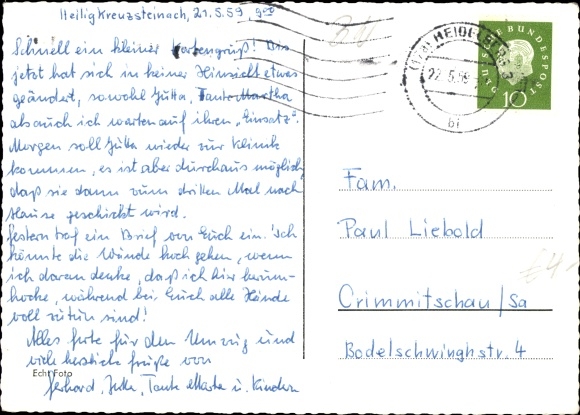 Heiligkreuzsteinach, 21.5.59 9⁰⁰
Schnell ein kleiner Kartengruß! Bis
jetzt hat sich in keiner Hinsicht etwas
geändert, sowohl Jutta, Tante Martha
als auch ich warten auf ihren „Einsatz".
Morgen soll Jutta wieder zur Klinik
kommen, es ist aber durchaus möglich,
daß sie dann zum dritten Mal nach
Hause geschickt wird.
Gestern traf ein Brief von Euch ein. Ich
könnte die Wände hoch gehen, wenn
ich daran denke, daß ich hier herum-
hocke, während bei Euch alle Hände
voll zu tun sind!
Alles Gute für den Umzug und
viele herzliche Grüße von
Echt Foto
Gerhard, Jutta, Tante Marta u. Kindern
HEIDELBERG
22.5.59
bi
DEUTSCHE BUNDESPOST
10
Fam.
Paul Liebold
Crimmitschau/Sa
Bodelschwinghstr. 4